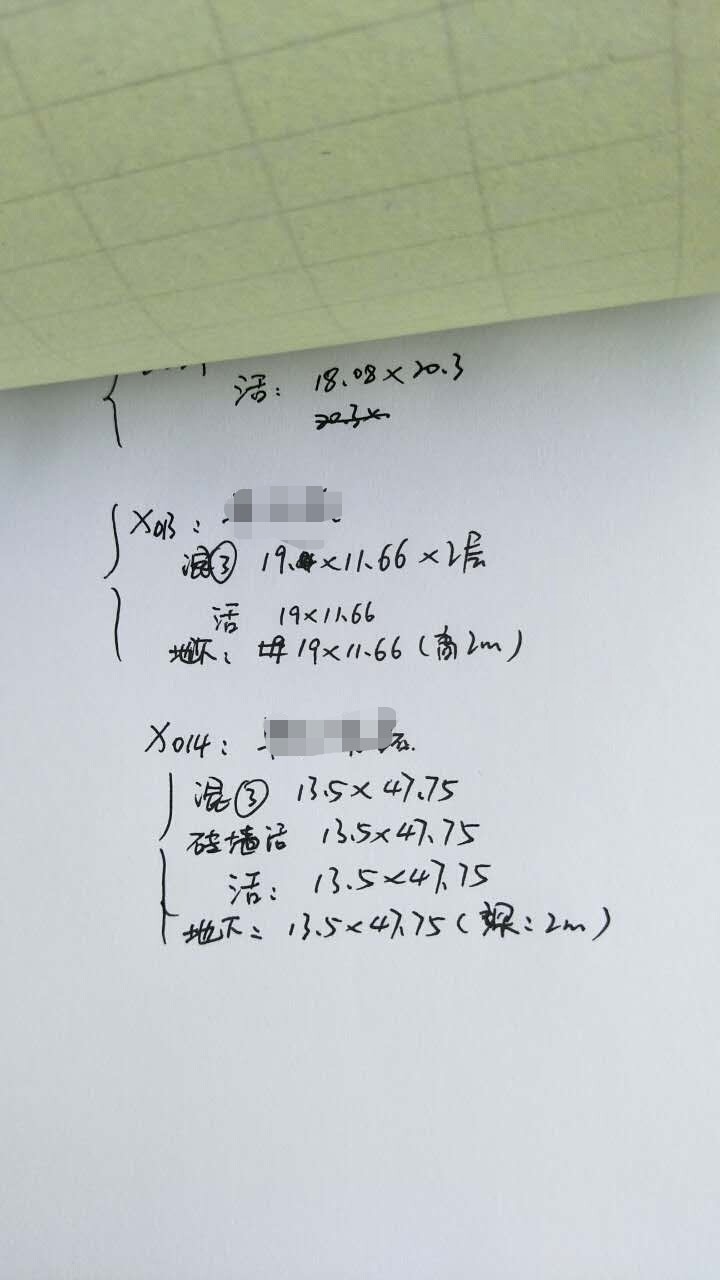 活: 18.08×20.3
20.3×
X013:
混③ 19.×11.66×2层
活 19×11.66
地下: 19×11.66(高2m)
X014:
混③ 13.5×47.75
砖墙活 13.5×47.75
活: 13.5×47.75
地下: 13.5×47.75(深:2m)